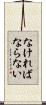 なければ
ならない